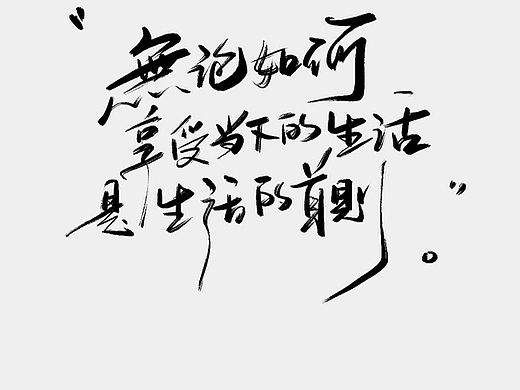 “無论如何
享受当下的生活
是生活的首則。”